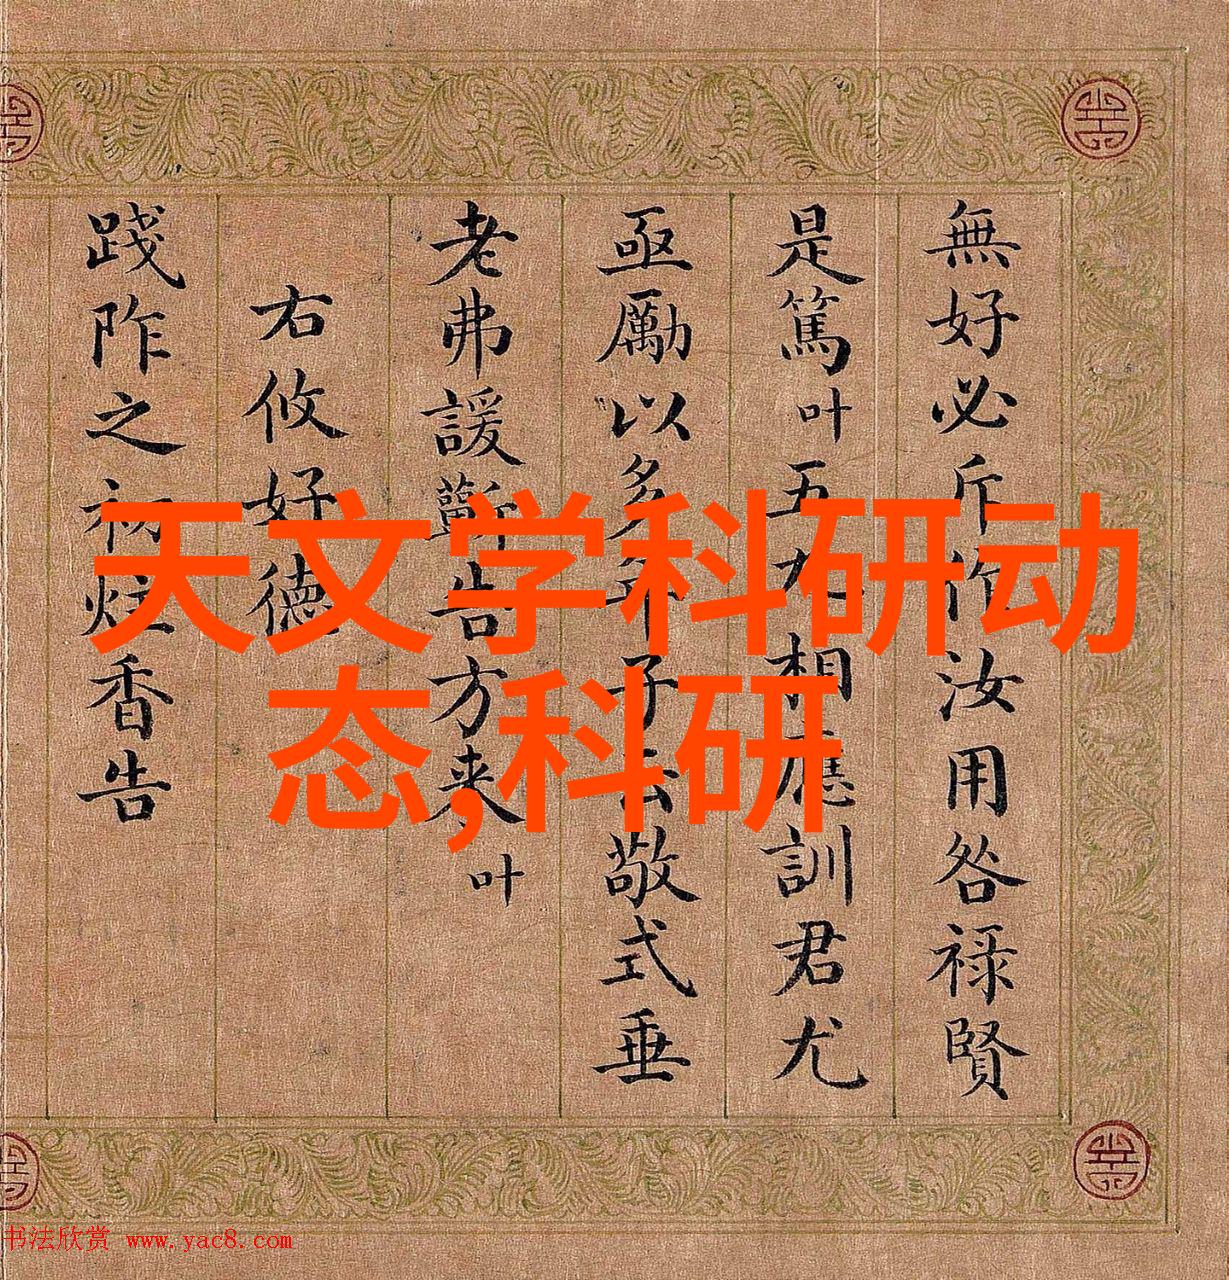 天文学科研动
态,科研
無好必斥作汝用咎祿賢
是篤叶五九相應訓君尤
亟勵以多年子云敬式垂
老弗諼蘄告方来叶
右攸好德
踐阼之初炷香告
书法欣赏 www.yac8.com